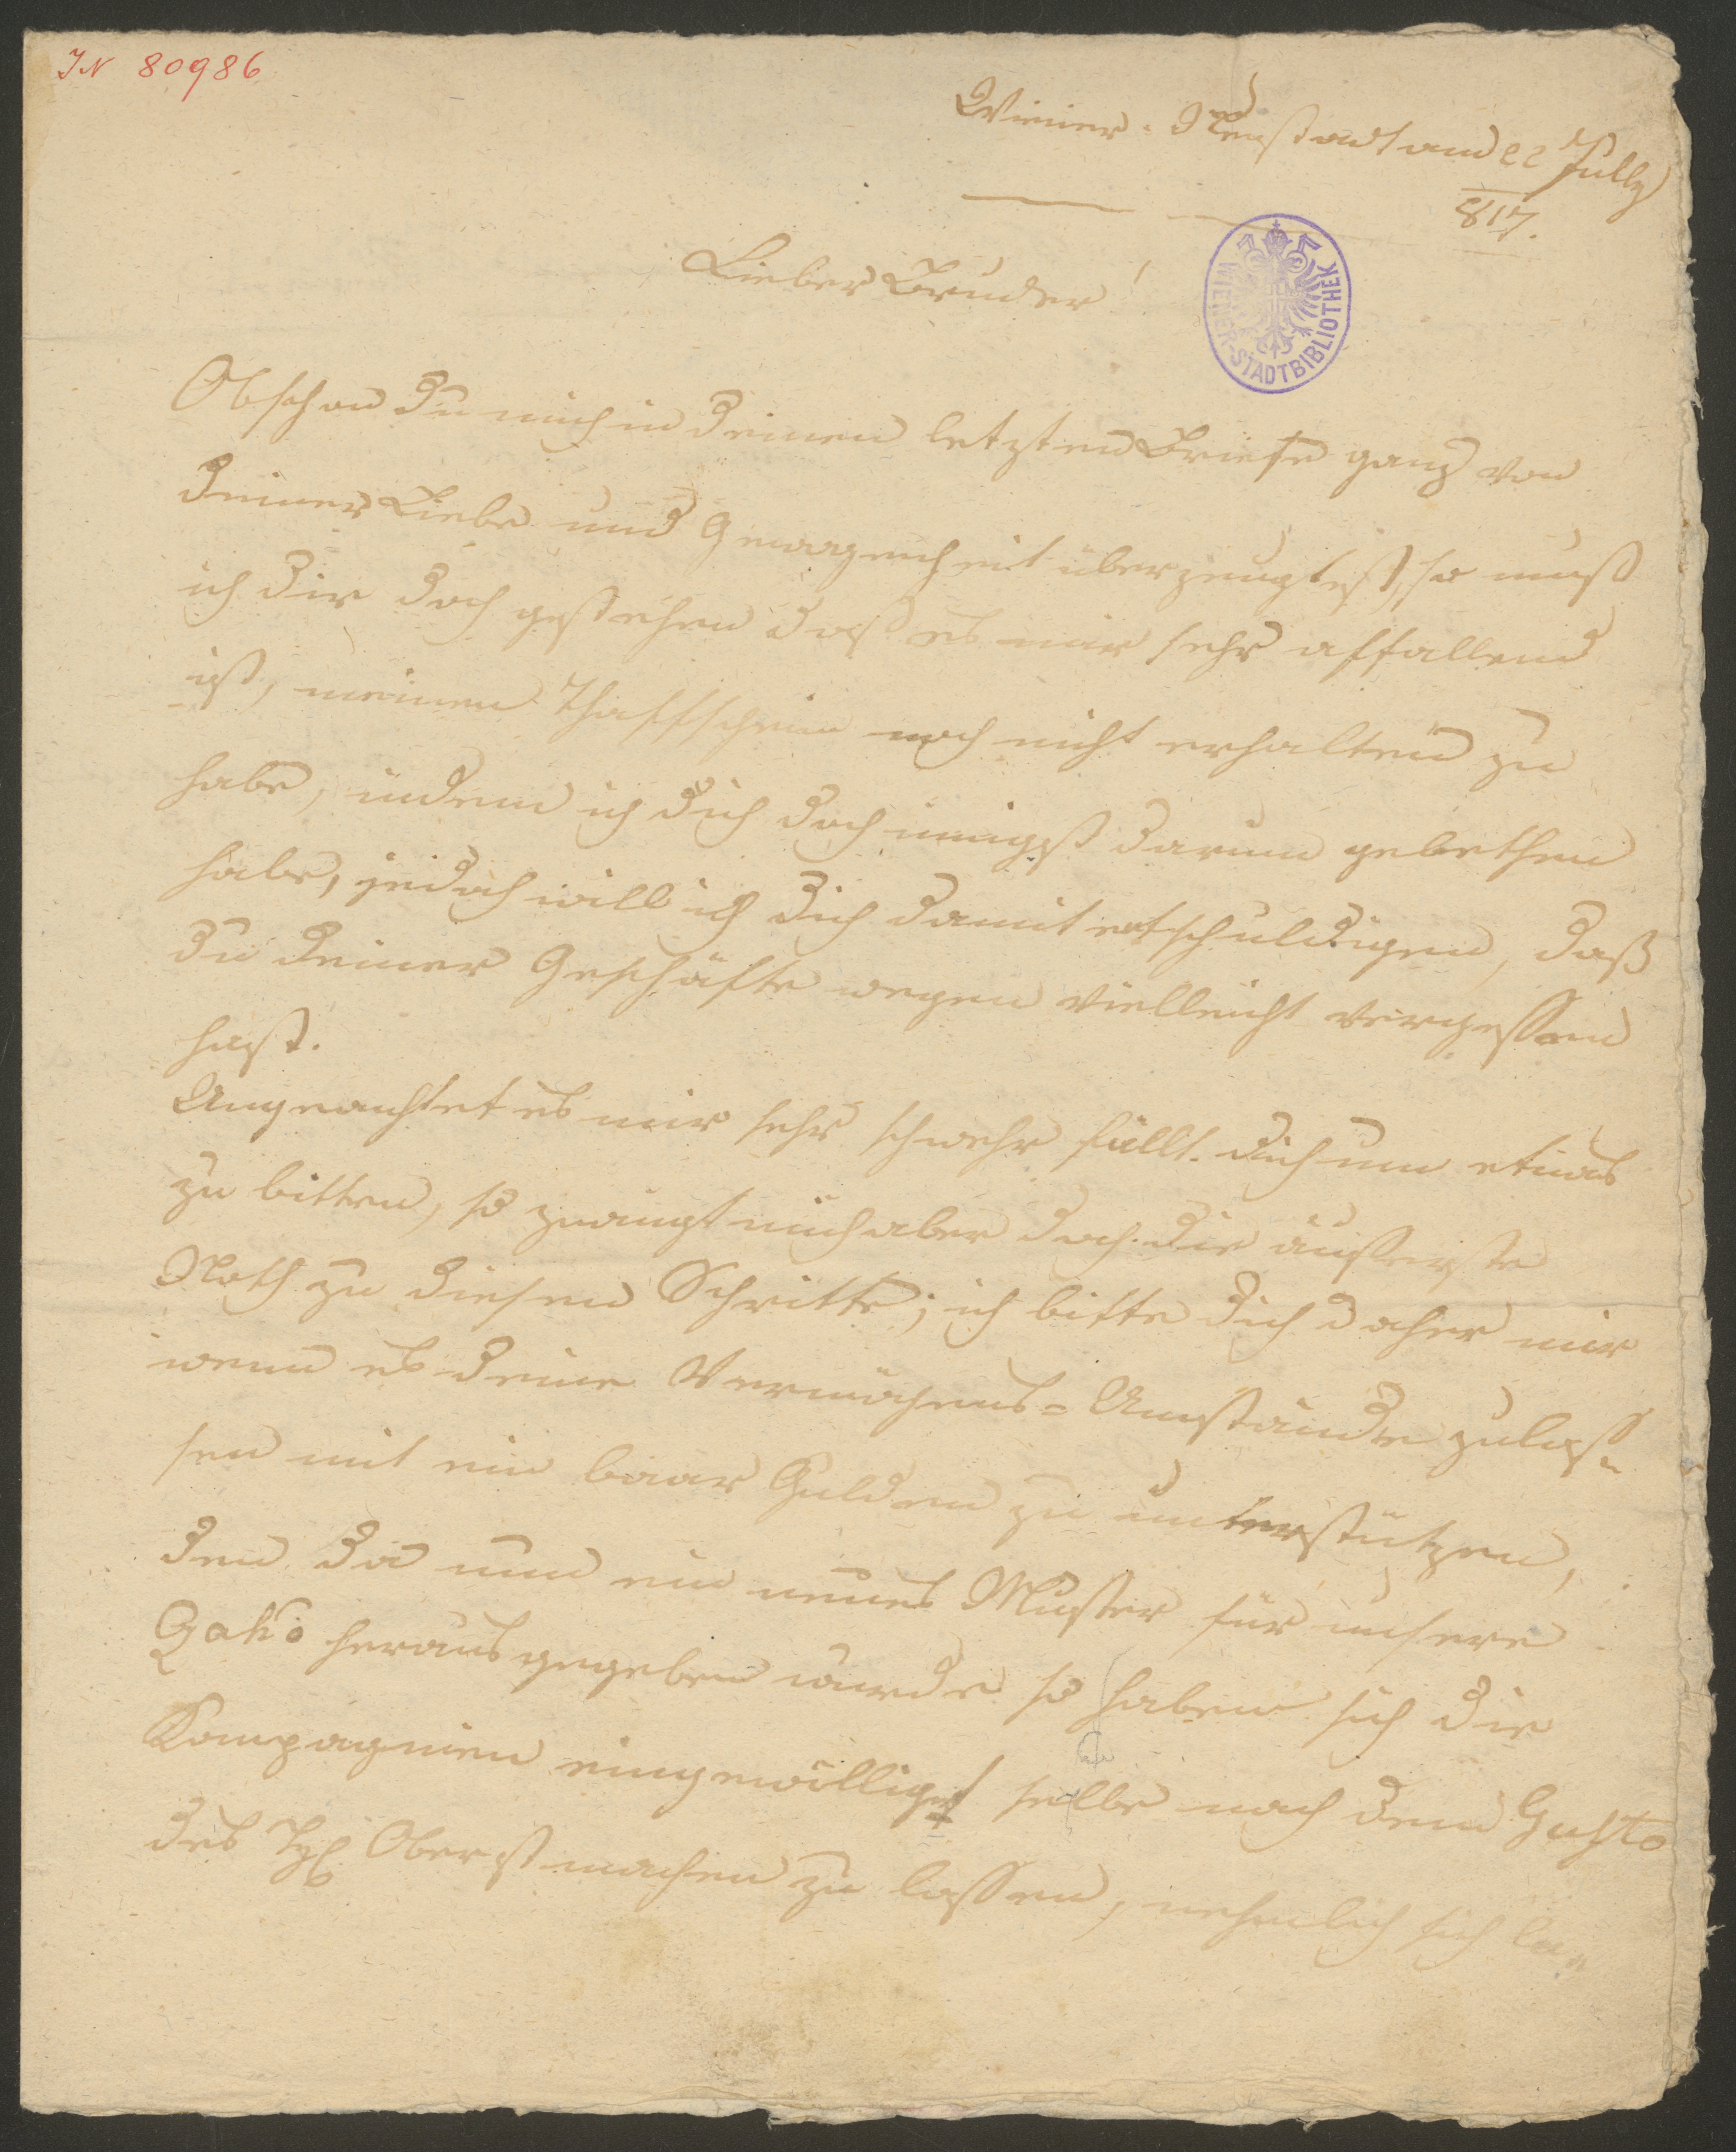 IN 80986
Wiener-Neustadt am 22 July
817.
WIENER-STADTBIBLIOTHEK
Lieber Bruder!
Obschon du mich in deinen letzten Briefe ganz von
deiner Liebe und Gewogenheit überzeugtest, so muß
ich dir doch gestehen daß es mir sehr affallend
ist, meinen noch nicht erhalten zu
habe, indem ich dich doch innigst darum gebethen
habe, jedoch will ich dich damit entschuldigen, daß
du deiner Geschäfte wegen vielleicht vergessen
hast.
Ungeachtet es mir sehr schwehr fällt dich um etwas
zu bitten, so zwingt mich aber doch die äusserste
Noth zu diesen Schritte; ich bitte dich daher mir
wenn es deine Vermögens-Umstände zulas=
sen mit ein baar Gulden zu unterstützen,
den da nun ein neues Muster für unsere
herausgegeben wurde so haben sich die
Kompagnien eingewilliget selbe nach dem Gusto
des Oberst machen zu lassen, nehmlich sich la=